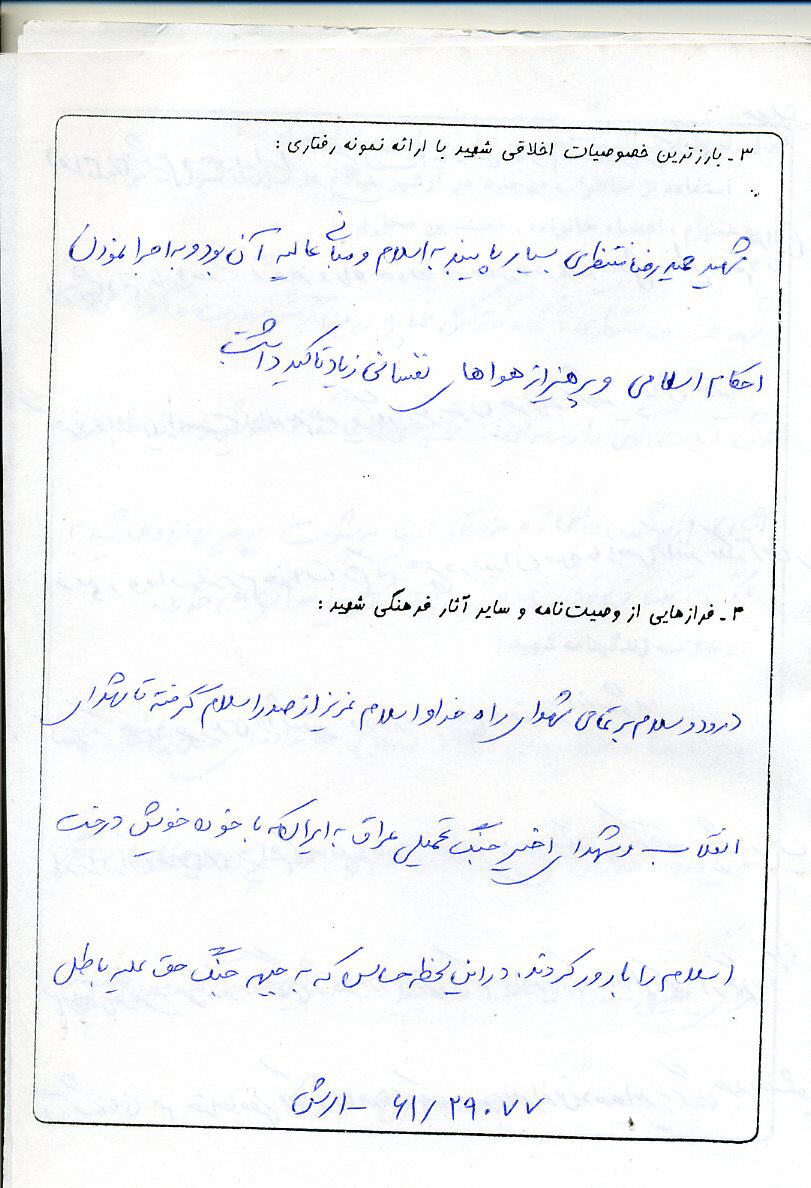 ۳ـ بارزترین خصوصیات اخلاقی شهید با ارائه نمونه رفتاری :
شهید حمیدرضا منتظری بسیار پایبند به اسلام و مبانی عالیه آن بود و به اجرا نمودن
احکام اسلامی و پرهیز از هواهای نفسانی زیاد تاکید داشت
۴ـ فرازهایی از وصیت‌نامه و سایر آثار فرهنگی شهید :
درود و سلام بر تمامی شهدای راه خدا و اسلام عزیز از صدر اسلام گرفته تا شهدای
انقلاب و شهدای اخیر جنگ تحمیلی عراق به ایران که با خون خویش درخت
اسلام را بارور کردند، در این لحظه حساس که به جبهه جنگ حق علیه باطل
۶۱/۲۹۰۷۷ – ارش